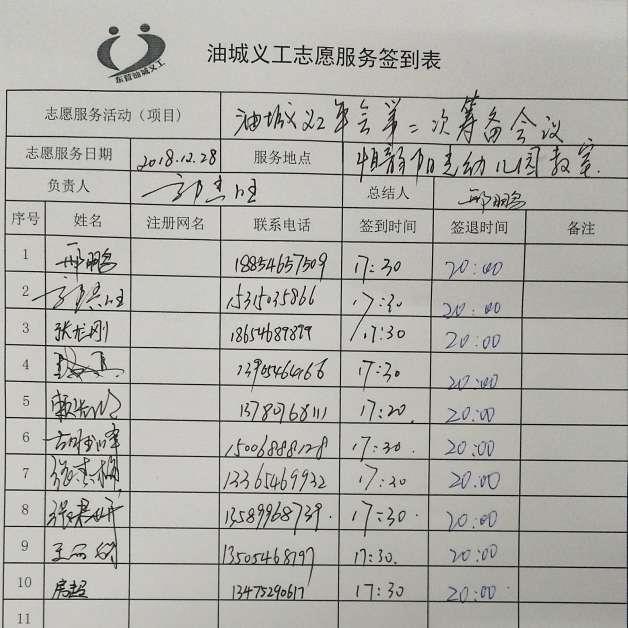 东营油城义工
油城义工志愿服务签到表
志愿服务活动（项目） 油城义工年会第二次筹备会议
志愿服务日期 2018.12.28 服务地点 恒韵阳光幼儿园教室.
负责人 总结人 邢鹏
序号 姓名 注册网名 联系电话 签到时间 签退时间 备注
1 邢鹏 18854657509 17:30 20:00
2 15315035866 17:30 20:00
3 张龙刚 18654689899 17:30 20:00
4 17:30 20:00
5 13780768111 17:20 20:00
6 15006888128 17:30 20:00
7 13365469932 17:20 20:00
8 13589968739 17:30 20:00
9 13505468797 17:30 20:00
10 房超 13475290617 17:30 20:00
11